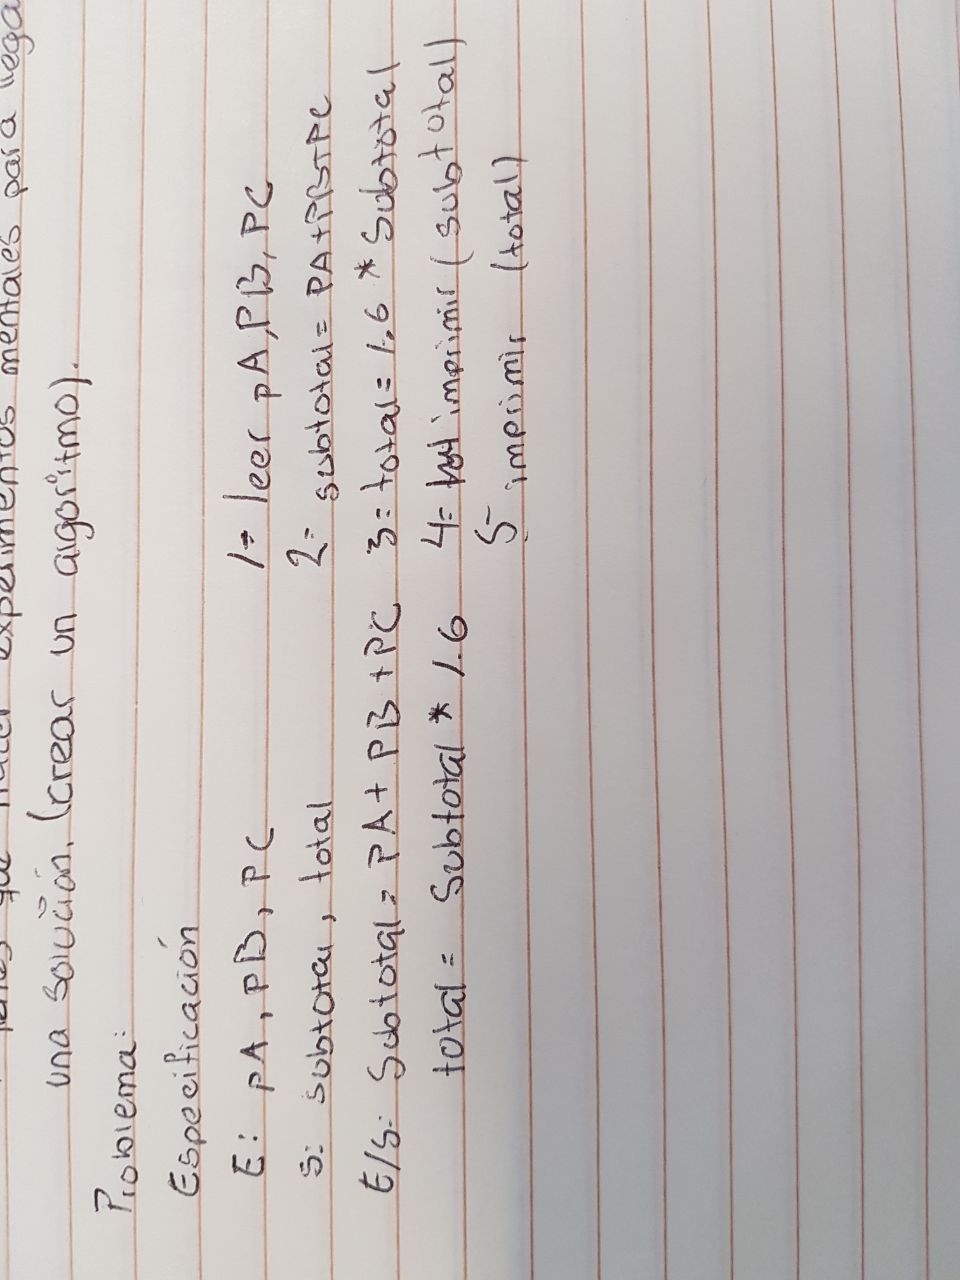 que hacer experimentos mentales para llega
una solución. (crear un algoritmo).
Problema:
Especificación
E: pA, pB, PC
S: subtotal, total
E/S: Subtotal = PA + PB + PC
total = Subtotal * 1.6
1= leer pA, PB, PC
2= subtotal = PA+PB+PC
3= total = 1.6 * Subtotal
4= imprimir (subtotal)
5 imprimir (total)